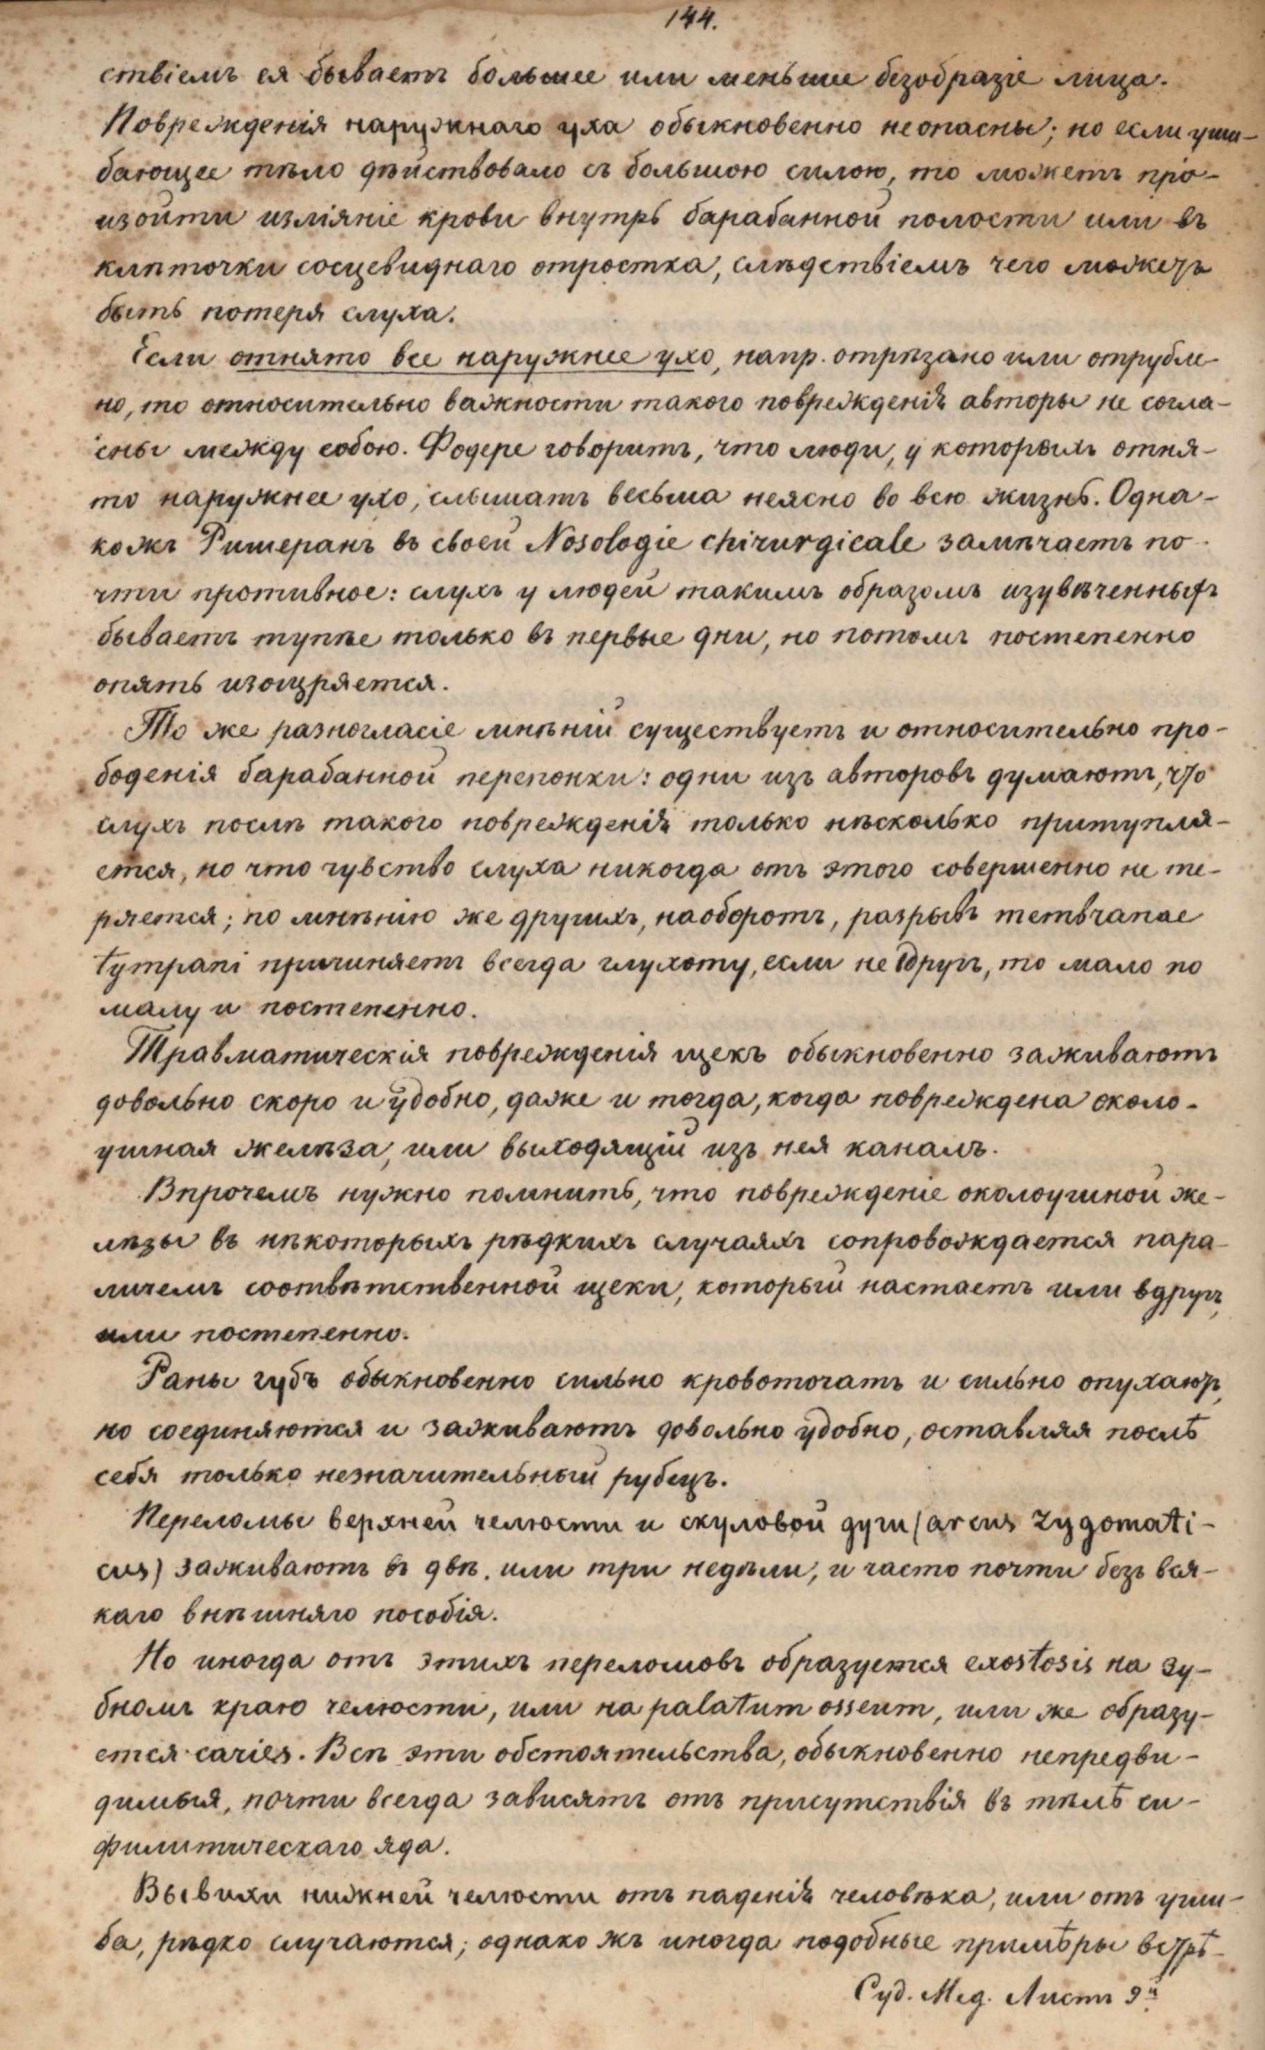 144.
ствіемъ ея бываетъ большее или меньшее безобразіе лица.
Поврежденія наружнаго уха обыкновенно неопасны; но если уши-
бающее тѣло дѣйствовало съ большою силою, то можетъ про-
изойти изліяніе крови внутрь барабанной полости или въ
клѣточки сосцевиднаго отростка, слѣдствіемъ чего можетъ
быть потеря слуха.
Если отнято все наружнее ухо, напр. отрѣзано или отрубле-
но, то относительно важности такого поврежденія авторы не согла-
сны между собою. Фодере говоритъ, что люди, у которыхъ отня-
то наружнее ухо, слышатъ весьма неясно во всю жизнь. Одна-
кожъ Ришеранъ въ своей Nosologie chirurgicale замѣчаетъ по-
чти противное: слухъ у людей такимъ образомъ изувѣченныхъ
бываетъ тупѣе только въ первые дни, но потомъ постепенно
опять изощряется.
То же разногласіе мнѣній существуетъ и относительно про-
боденія барабанной перепонки: одни изъ авторовъ думаютъ, что
слухъ послѣ такого поврежденія только нѣсколько притупля-
ется, но что чувство слуха никогда отъ этого совершенно не те-
ряется; по мнѣнію же другихъ, наоборотъ, разрывъ membranae
tympani причиняетъ всегда глухоту, если не вдругъ, то мало по
малу и постепенно.
Травматическія поврежденія щекъ обыкновенно заживаютъ
довольно скоро и удобно, даже и тогда, когда повреждена около-
ушная желѣза, или выходящій изъ нея каналъ.
Впрочемъ нужно помнить, что поврежденіе околоушной же-
лѣзы въ нѣкоторыхъ рѣдкихъ случаяхъ сопровождается пара-
личемъ соотвѣтственной щеки, который настаетъ или вдругъ,
или постепенно.
Раны губъ обыкновенно сильно кровоточатъ и сильно опухаютъ,
но соединяются и заживаютъ довольно удобно, оставляя послѣ
себя только незначительный рубецъ.
Переломы верхней челюсти и скуловой дуги (arcus zygomati-
cus) заживаютъ въ двѣ или три недѣли, и часто почти безъ вся-
каго внѣшняго пособія.
Но иногда отъ этихъ переломовъ образуется exostosis на зу-
бномъ краю челюсти, или на palatum osseum, или же образу-
ется caries. Всѣ эти обстоятельства, обыкновенно непредви-
димыя, почти всегда зависятъ отъ присутствія въ тѣлѣ си-
филитическаго яда.
Вывихи нижней челюсти отъ паденія человѣка, или отъ уши-
ба, рѣдко случаются; однако жъ иногда подобные примѣры встрѣ-
Суд. Мед. Листъ 9й